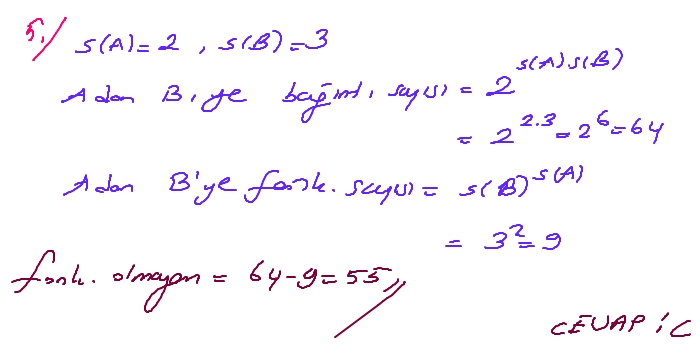 5.) s(A)=2 , s(B)=3
A dan B'ye bağıntı sayısı = 2^{s(A).s(B)}
= 2^{2.3} = 2^6 = 64
A dan B'ye fonk. sayısı = s(B)^{s(A)}
= 3^2 = 9
fonk. olmayan = 64-9=55
CEVAP : C